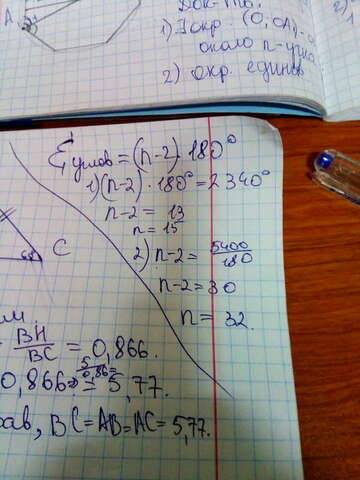 A
Док-тво.
1) Докр. (O, OA)
около n-уго
2) окр. единс
Σ углов = (n-2) · 180°
1) (n-2) · 180° = 2340°
n-2 = 13
n = 15
2) n-2 = 5400/180
n-2 = 30
n = 32.
60°
C
BH/BC = 0,866.
0,866 = 5/0,866 = 5,77.
рав, BC = AB = AC = 5,77.